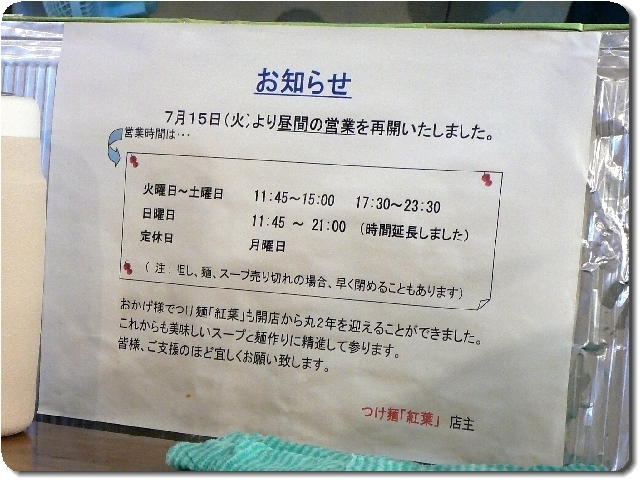 お知らせ
7月15日(火)より昼間の営業を再開いたしました。
営業時間は…
火曜日～土曜日 11:45～15:00 17:30～23:30
日曜日 11:45 ～ 21:00 (時間延長しました)
定休日 月曜日
( 注:但し、麺、スープ売り切れの場合、早く閉めることもあります)
おかげ様でつけ麺「紅葉」も開店から丸2年を迎えることができました。
これからも美味しいスープと麺作りに精進して参ります。
皆様、ご支援のほど宜しくお願い致します。
つけ麺「紅葉」 店主